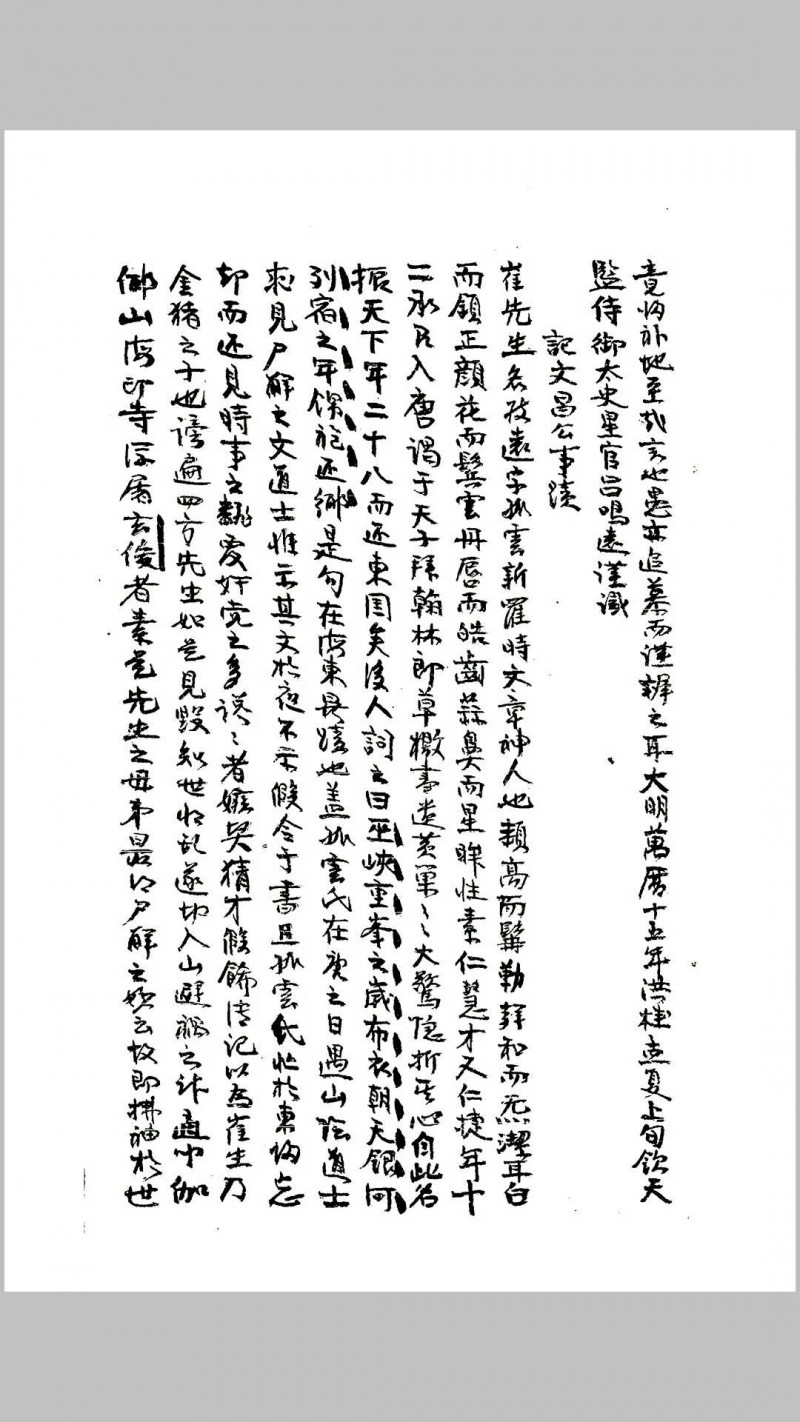 竟以补地至哉言也愚亦追慕而謹辨之耳大明萬曆十五年洪種孟夏上旬欽天
監侍御太史星官呂鳴遠謹識
記文昌公事蹟
崔先生名致遠字孤雲新羅時文章神人也類高而鬢勒辞和而炁潔耳白
而領正顔花而鬓雲丹唇而皓齒蒜鼻而星眸性素仁慧才又仁捷年十
二承民入唐謁于天子拜翰林郎草檄書遣黃巢〻大驚隐折其心自此名
振天下年二十八而还東国矣後人詞之曰巫峽重峯之歲布衣朝天銀河
列宿之年保袍还鄉是句在海東長蹟也盖孤雲氏在唐之日遇山陰道士
求見尸解之文道士惟示其文於夜不示假令于書且孤雲氏忙於東歸忘
却而还見時事之艱爱奸党之多誤〻者嫉其猜才假餙情記以為崔生乃
金猪之子也謗遍四方先生如是見毀知世将乱遂切入山避禍之計適中伽
倻山海印寺浮屠玄俊者素是先生之母弟最得尸解之妙云故即拂袖於世